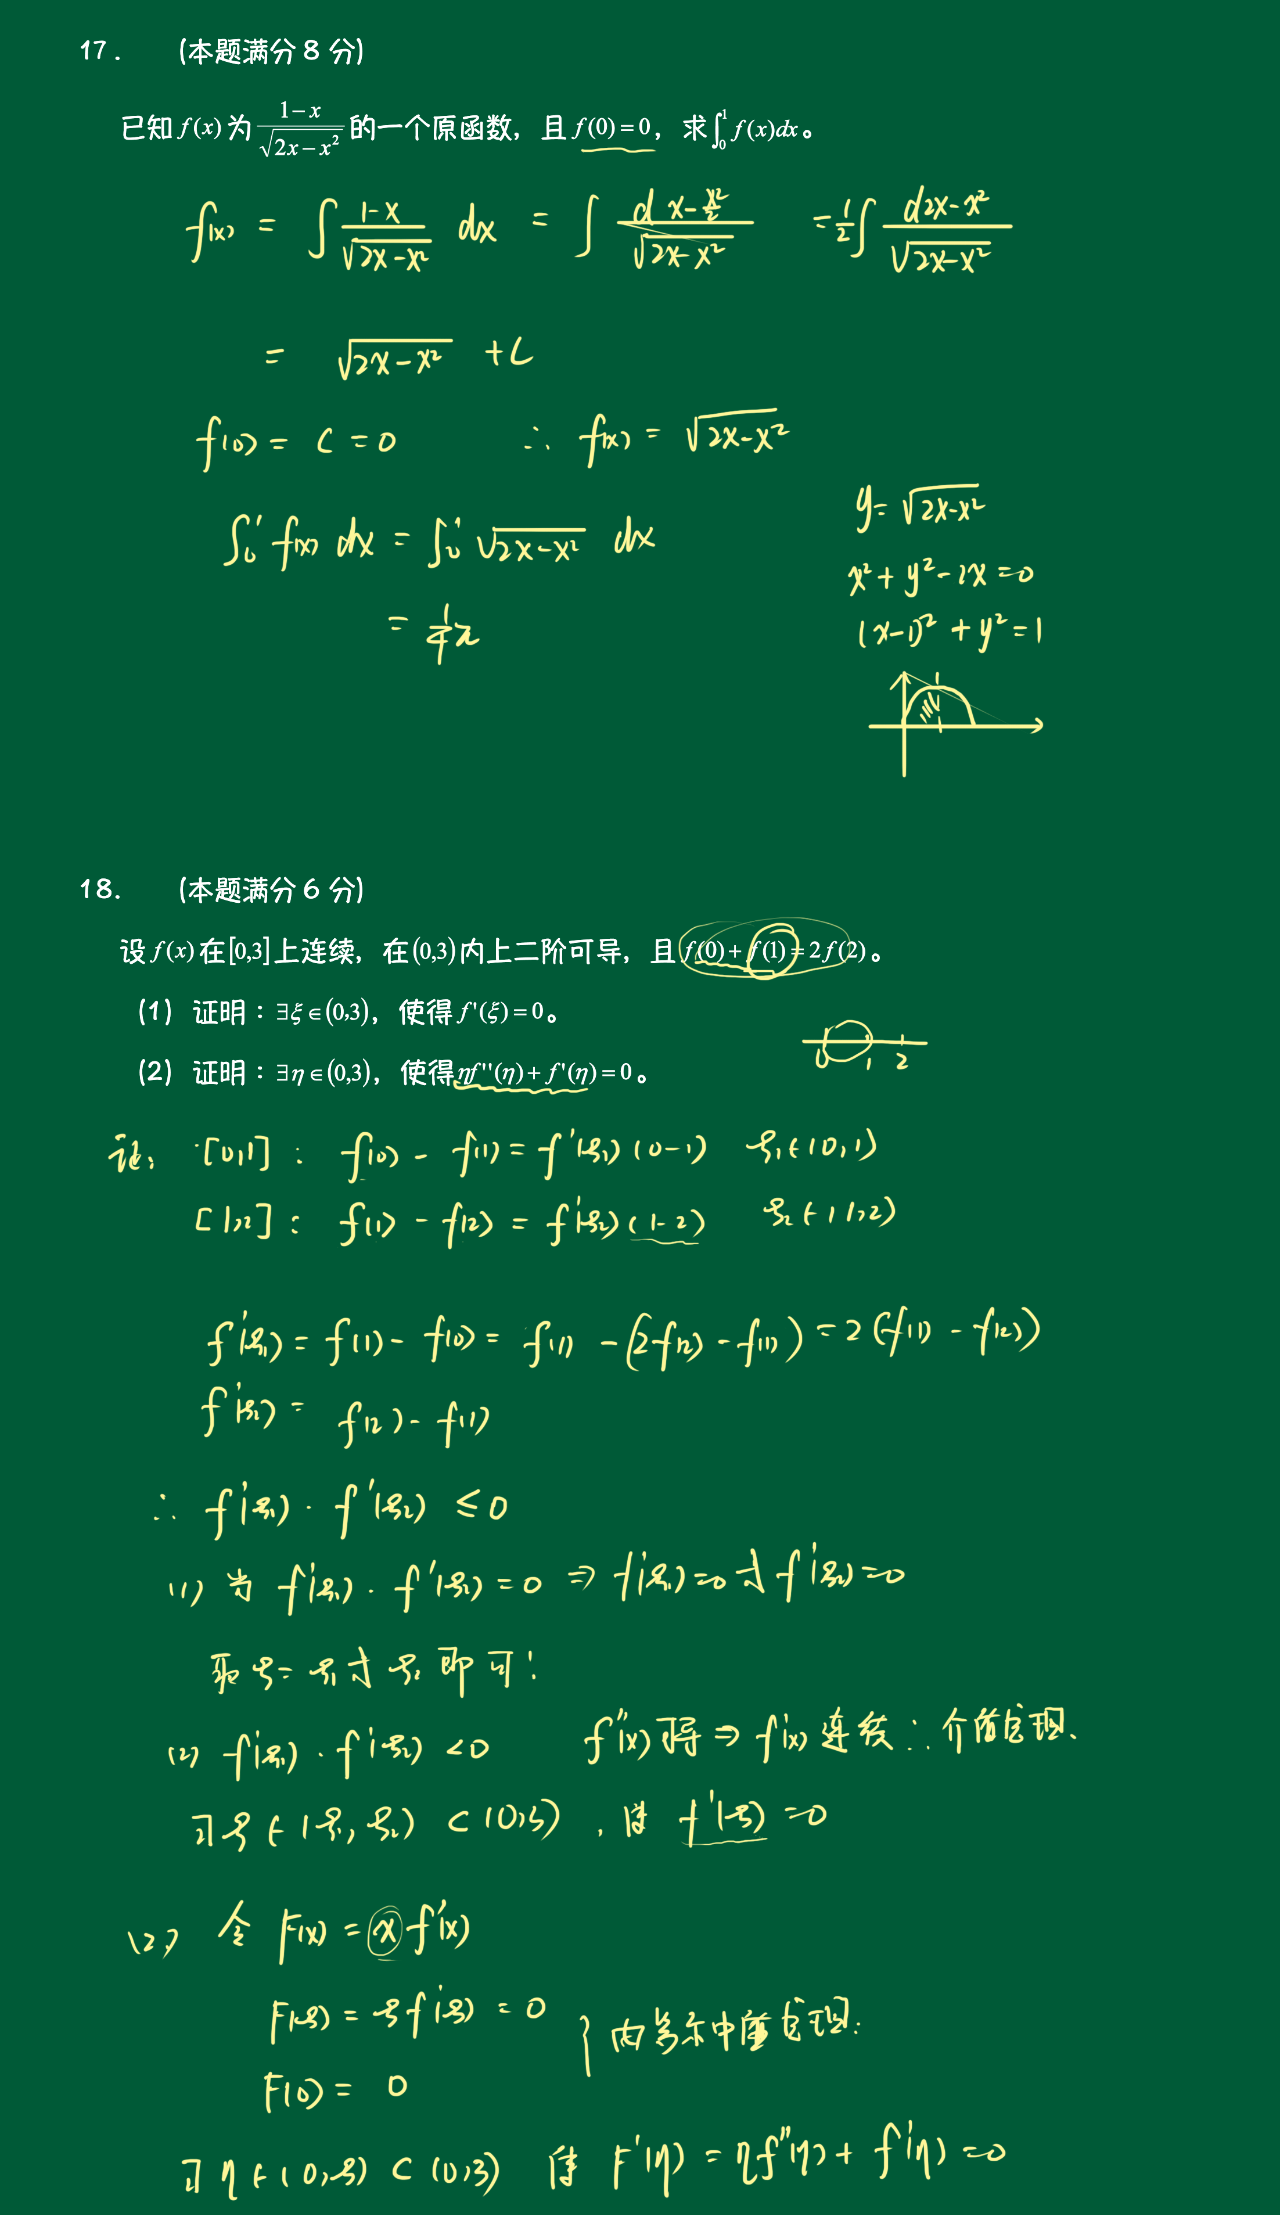 17. (本题满分 8 分)
已知 f(x) 为 \frac{1-x}{\sqrt{2x-x^2}} 的一个原函数，且 f(0)=0，求 \int_0^1 f(x)dx。
f(x) = ∫ \frac{1-x}{\sqrt{2x-x^2}} dx = ∫ \frac{d x-\frac{x^2}{2}}{\sqrt{2x-x^2}} = \frac{1}{2} ∫ \frac{d 2x-x^2}{\sqrt{2x-x^2}}
= \sqrt{2x-x^2} + C
f(0) = C = 0 ∴ f(x) = \sqrt{2x-x^2}
\int_0^1 f(x) dx = \int_0^1 \sqrt{2x-x^2} dx
= \frac{1}{4}π
y = \sqrt{2x-x^2}
x^2 + y^2 - 2x = 0
(x-1)^2 + y^2 = 1
1
18. (本题满分 6 分)
设 f(x) 在 [0,3] 上连续，在 (0,3) 内上二阶可导，且 f(0)+f(1)=2f(2)。
(1) 证明：∃ξ∈(0,3)，使得 f'(ξ)=0。
(2) 证明：∃η∈(0,3)，使得 ηf''(η)+f'(η)=0。
0 1 2
证: [0,1] : f(0) - f(1) = f'(ξ₁)(0-1) ξ₁∈(0,1)
[1,2] : f(1) - f(2) = f'(ξ₂)(1-2) ξ₂∈(1,2)
f'(ξ₁) = f(1) - f(0) = f(1) - (2f(2) - f(1)) = 2(f(1) - f(2))
f'(ξ₂) = f(2) - f(1)
∴ f'(ξ₁) · f'(ξ₂) ≤ 0
(1) 当 f'(ξ₁) · f'(ξ₂) = 0 ⇒ f'(ξ₁)=0 或 f'(ξ₂)=0
取 ξ = ξ₁ 或 ξ₂ 即可!
(2) f'(ξ₁) · f'(ξ₂) < 0 f''(x) 可导 ⇒ f'(x) 连续 ∴ 介值定理、
∃ξ∈(ξ₁, ξ₂) ⊂ (0,3) , 使 f'(ξ) = 0
(2) 令 F(x) = x f'(x)
F(ξ) = ξf'(ξ) = 0
F(0) = 0
} 由罗尔中值定理:
∃η∈(0,ξ) ⊂ (0,3) 使 F'(η) = ηf''(η) + f'(η) = 0